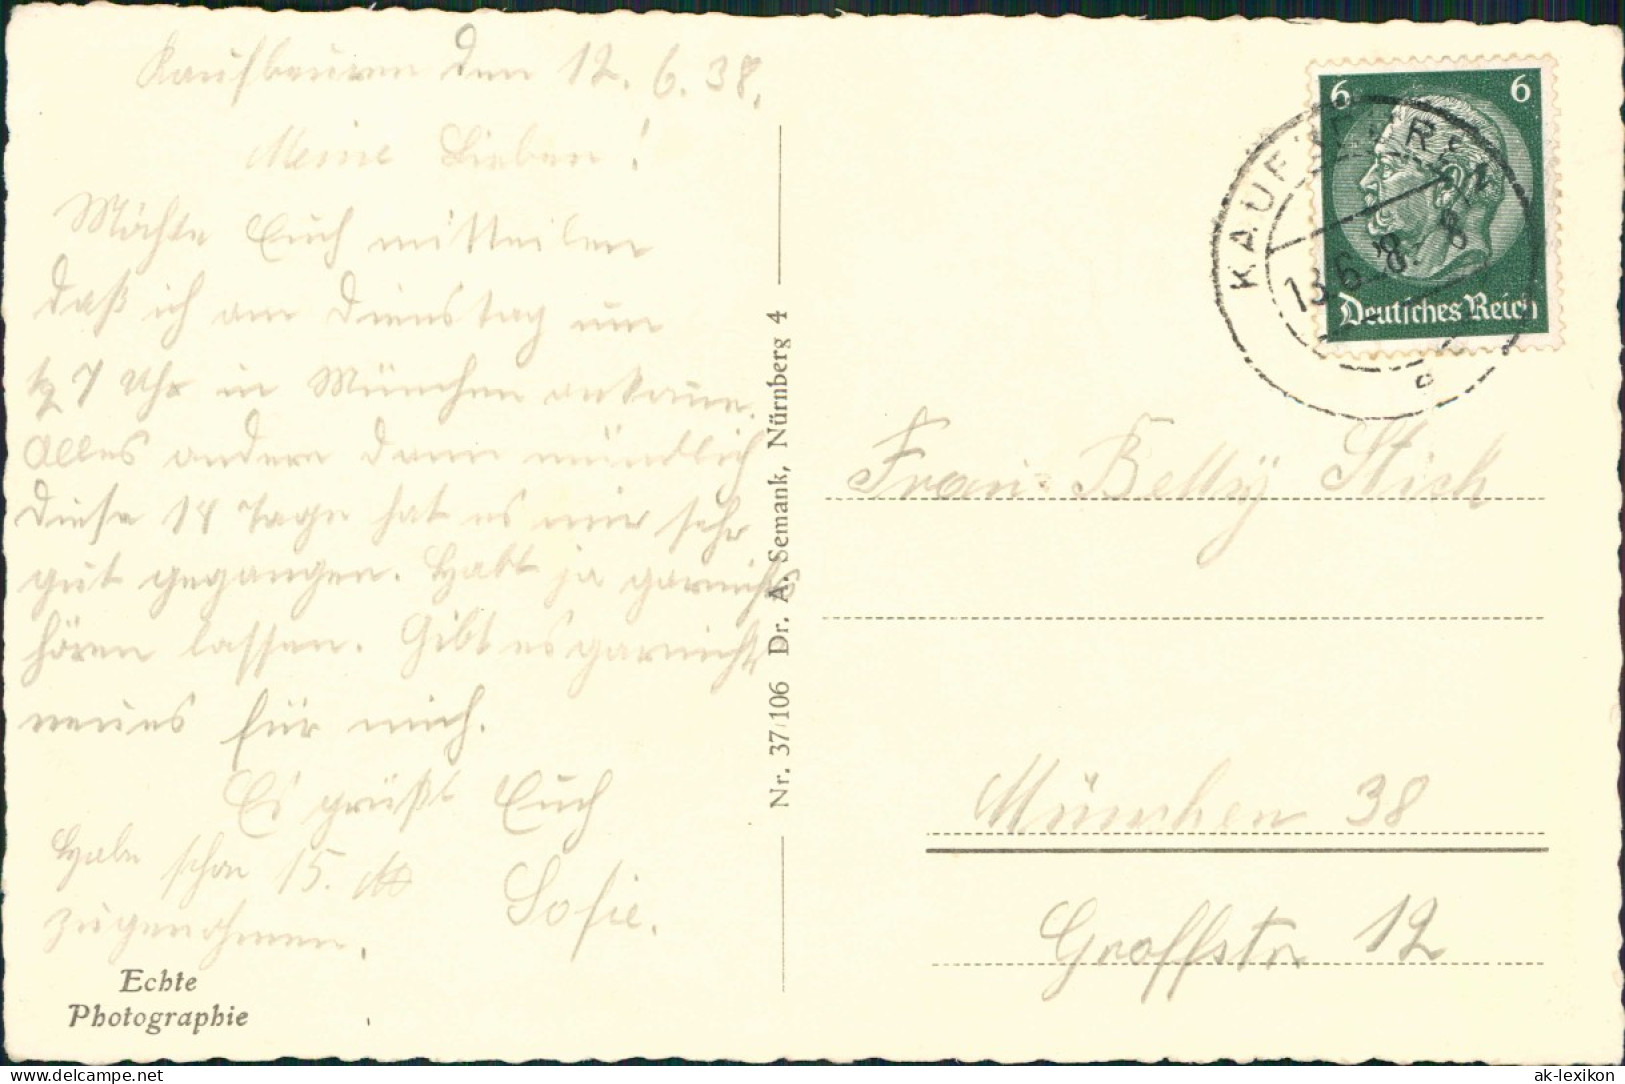 Kaufbeuren den 12.6.38.
Meine Lieben!
Möchte Euch mitteilen
daß ich am Dienstag um
½ 7 Uhr in München ankomme.
Alles andere dann mündlich
Diese 14 Tage hat es mir sehr
gut gegangen. Habt ja garnichts
hören lassen. Gibt es garnichts
neues für mich.
Es grüßt Euch
Sofie.
Habe schon 15. ℔
zugenohmen.
Echte
Photographie
Nr. 37/106 Dr. A. Semank, Nürnberg 4
6 6
Deutsches Reich
KAUFBEUREN
13.6.38.-8
Betty Stich
München 38
Groffstr 12
www.delcampe.net
ak-lexikon